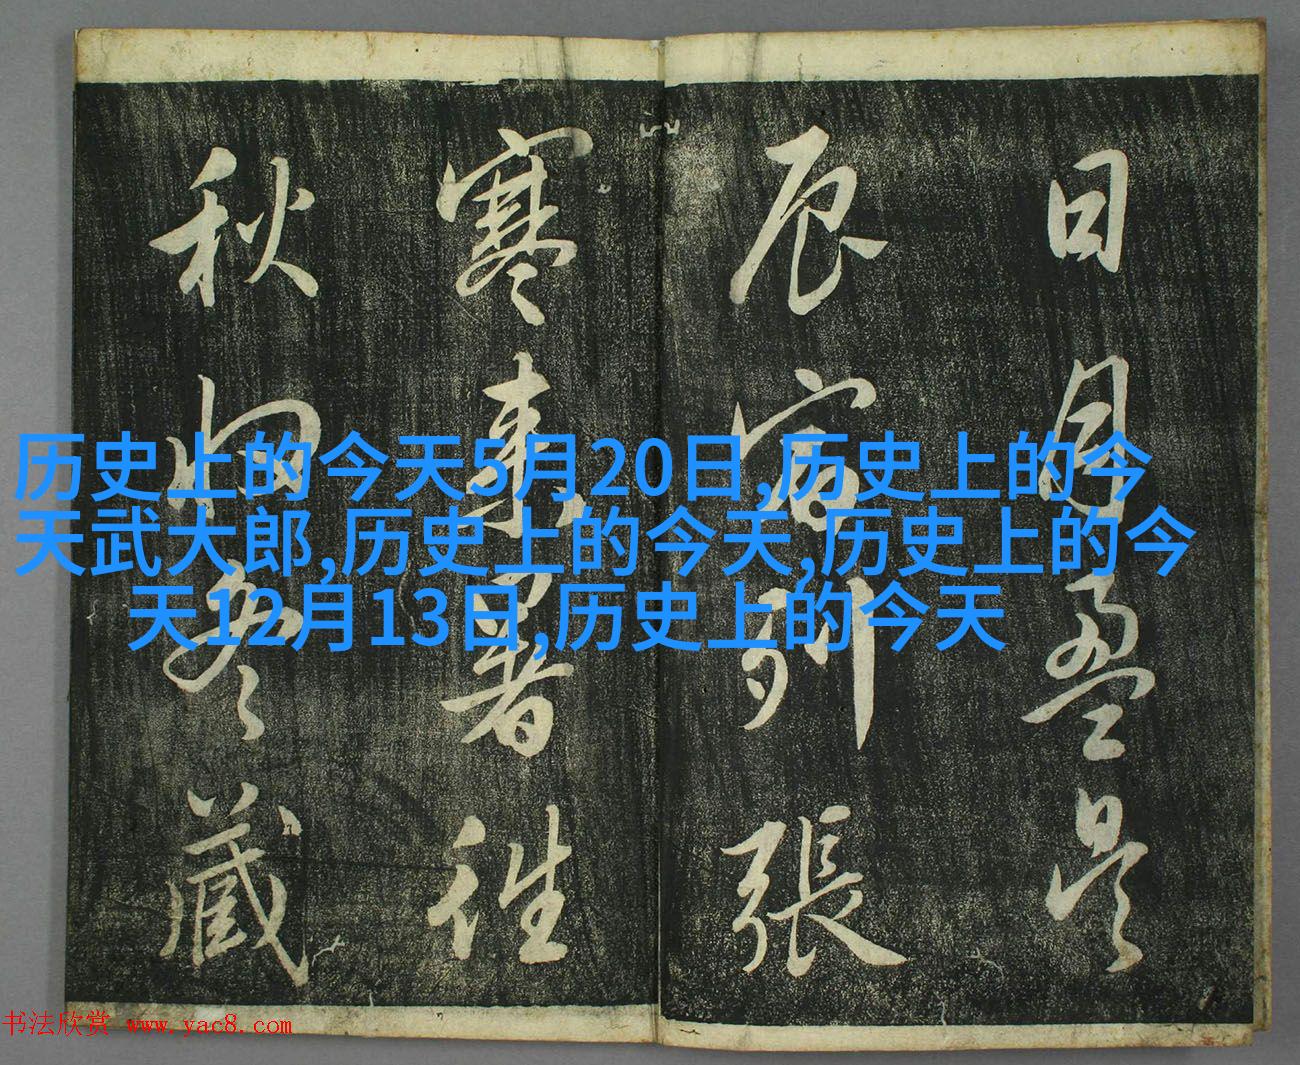 日月盈昃
辰宿列張
寒來暑往
秋收冬藏
历史上的今天5月20日,历史上的今
天武大郎,历史上的今天,历史上的今
天12月13日,历史上的今天
书法欣赏 www.yac8.com